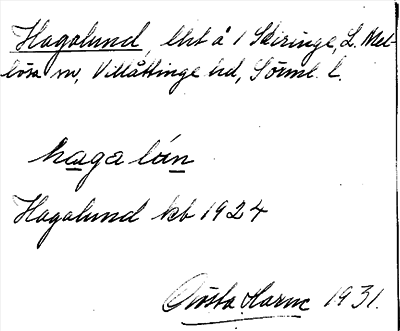 Hagalund, lht å 1 Skiringe, L. Mel-
lösa sn, Villåttinge hd, Sörml. l.
haga lún
Hagalund kb 1924
Gösta Harne 1931.